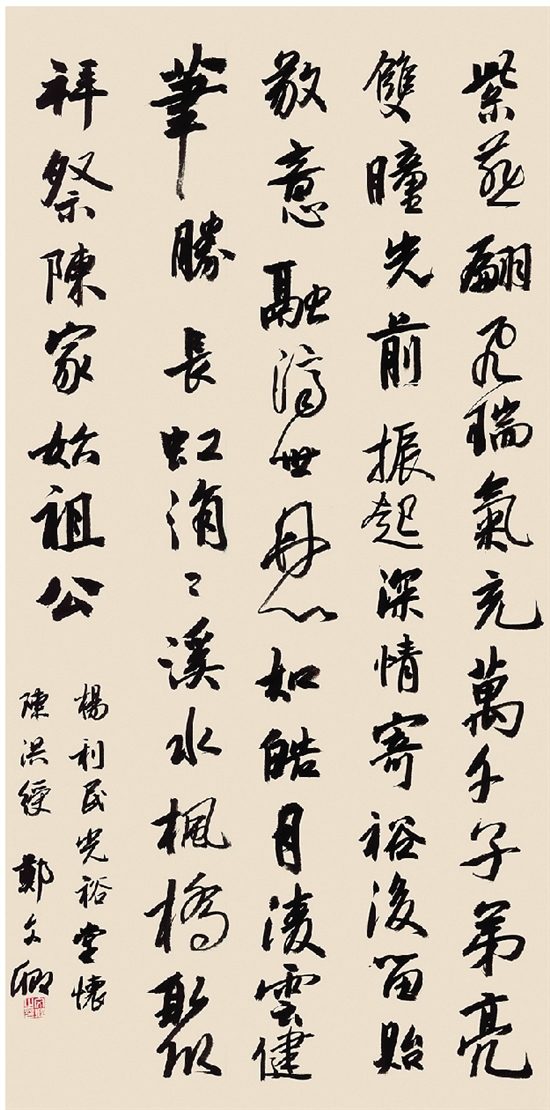 紫燕翩飛瑞氣充萬千子弟亮
雙瞳光前振起深情寄裕後留貽
敬意融濟世丹心如皓月凌雲健
筆勝長虹涓々溪水楓橋聚似
拜祭陳家始祖公
楊利民光裕堂懷
陳洪綬 鄭文卿